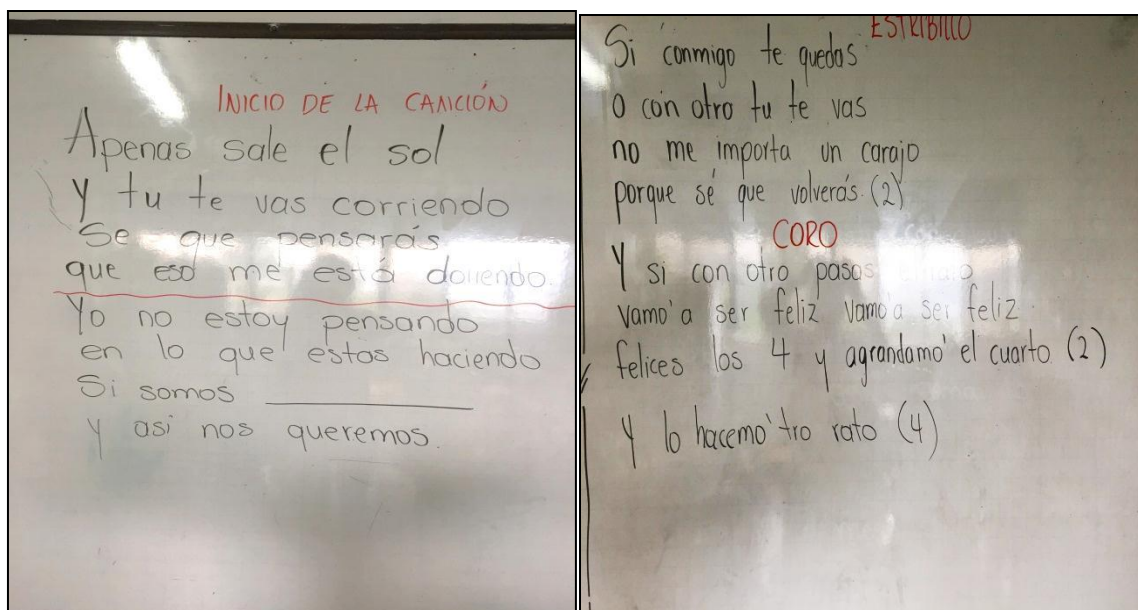 INICIO DE LA CANCIÓN
Apenas sale el sol
y tu te vas corriendo
Se que pensarás
que eso me está doliendo.
Yo no estoy pensando
en lo que estas haciendo
Si somos ____________
y asi nos queremos.
ESTRIBILLO
Si conmigo te quedas
o con otro tu te vas
no me importa un carajo
porque sé que volverás (2)
CORO
Y si con otro pasas
vamo' a ser feliz vamo' a ser feliz
felices los 4 y agrandamo' el cuarto (2)
Y lo hacemo' tro rato (4)